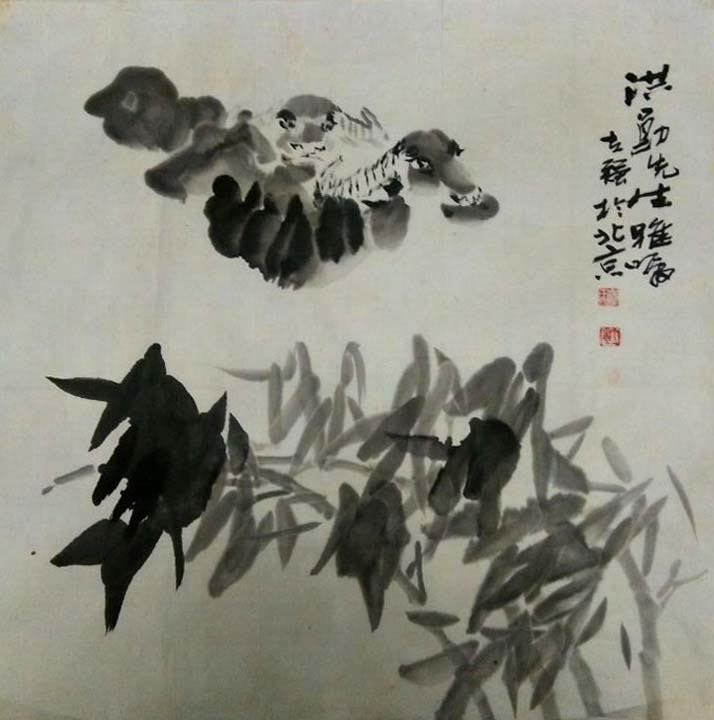 洪勛先生雅嘱
古强於北京